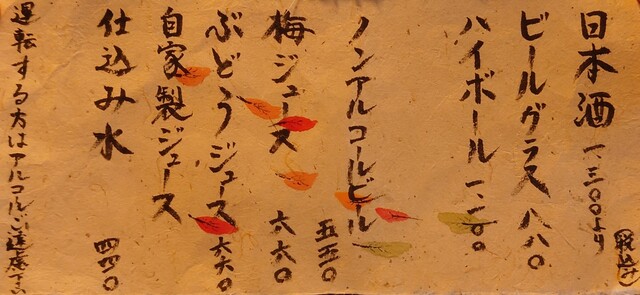 日本酒 一、三〇〇より
(税込み)
ビールグラス 八八〇
ハイボール 一、一〇〇
ノンアルコールビール 五五〇
梅ジュース 六六〇
ぶどうジュース 六六〇
自家製ジュース
仕込み水 四四〇
運転する方はアルコールご遠慮下さい